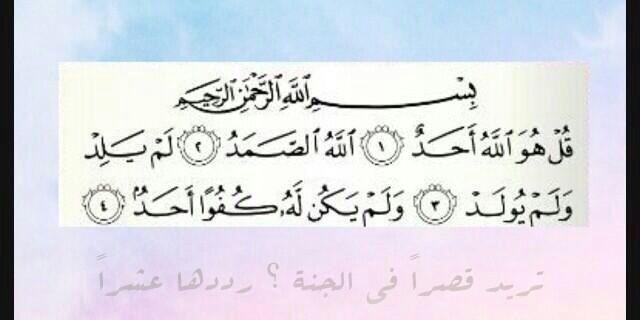 بِسْمِ اللَّهِ الرَّحْمَٰنِ الرَّحِيمِ
قُلْ هُوَ اللَّهُ أَحَدٌ ١ اللَّهُ الصَّمَدُ ٢ لَمْ يَلِدْ
وَلَمْ يُولَدْ ٣ وَلَمْ يَكُن لَّهُۥ كُفُوًا أَحَدٌۢ ٤
تريد قصراً فى الجنة ؟ رددها عشراً